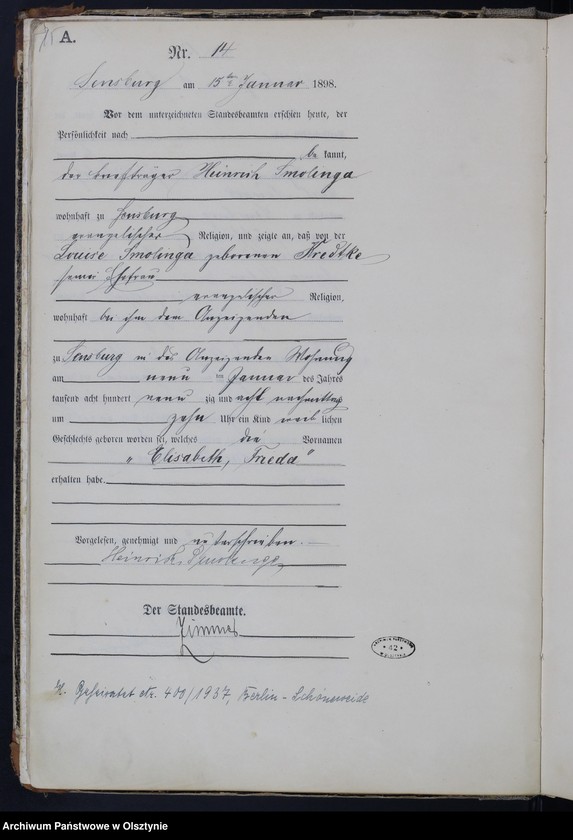 A.
Nr. 14
Sensburg am 15ten Januar 1898.
Vor dem unterzeichneten Standesbeamten erschien heute, der
Persönlichkeit nach
be kannt,
der Briefträger Heinrich Smolinga
wohnhaft zu Sensburg
evangelischer Religion, und zeigte an, daß von der
Louise Smolinga geborenen Kredtke
seiner Ehefrau
evangelischer Religion,
wohnhaft bei ihm dem Anzeigenden
zu Sensburg in des Anzeigenden Wohnung
am neun ten Januar des Jahres
tausend acht hundert neun zig und acht nachmittags
um zehn Uhr ein Kind weib lichen
Geschlechts geboren worden sei, welches die Vornamen
„Elisabeth, Frieda"
erhalten habe.
Vorgelesen, genehmigt und unterschrieben.
Heinrich Smolinga
Der Standesbeamte.
Zimmer
H. Geheiratet Nr. 409/1937, Berlin-Schöneweide
42
Archiwum Państwowe w Olsztynie